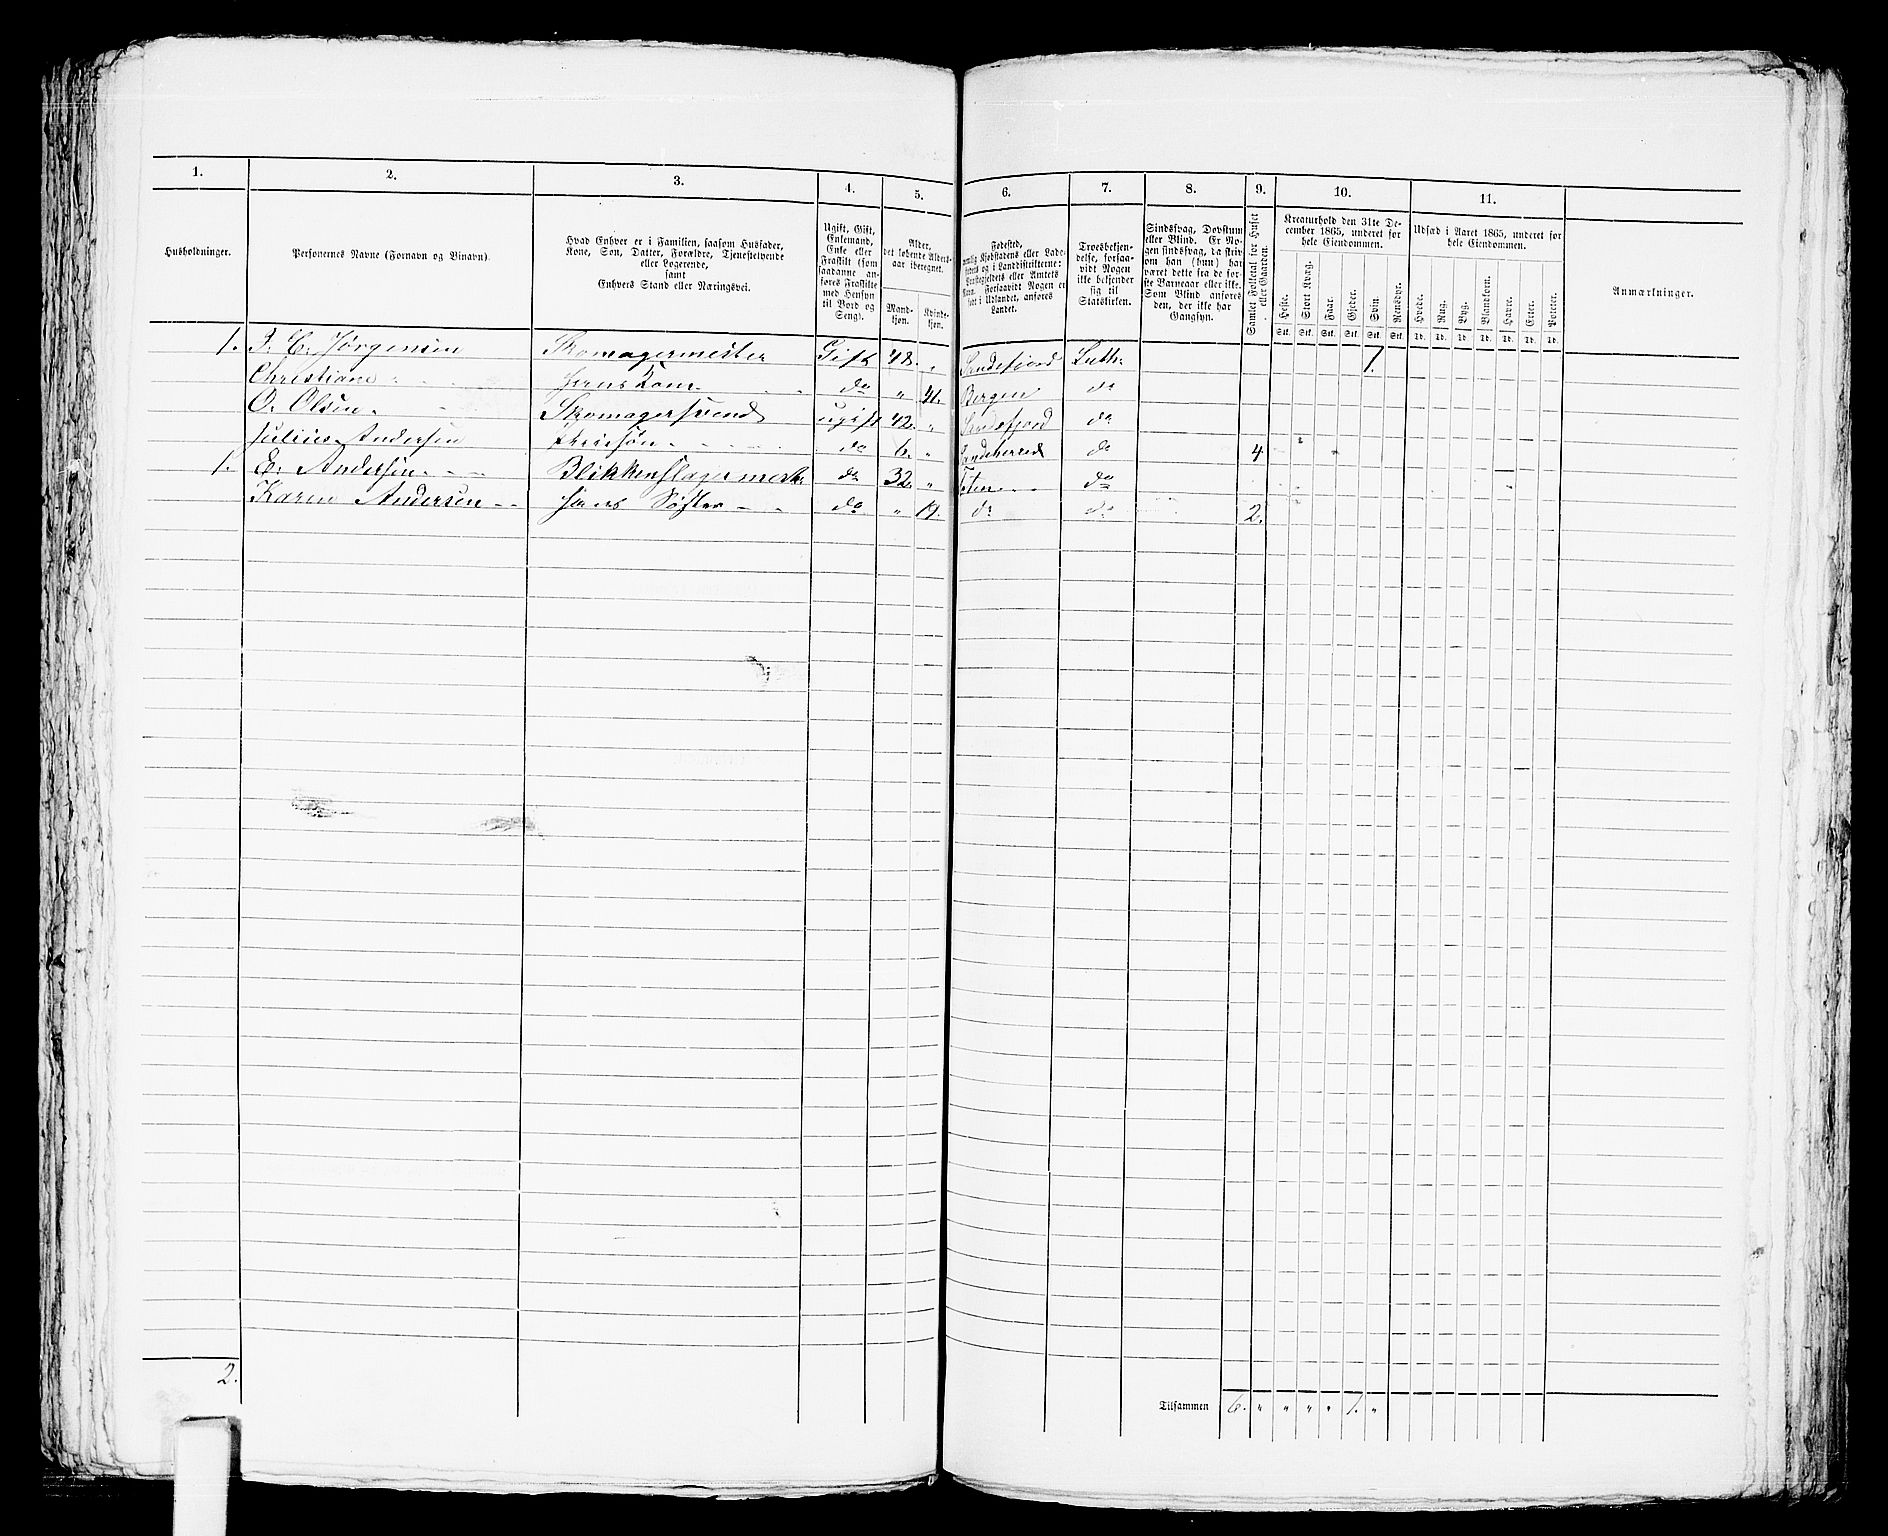 1. 2. 3. 4. 5. 6. 7. 8. 9. 10. 11.
Husholdninger.
Personernes Navne (Fornavn og Binavn).
Hvad Enhver er i Familien, saasom Husfader,
Kone, Søn, Datter, Forældre, Tjenestetyende
eller Logerende,
samt
Enhvers Stand eller Næringsvei.
Ugift, Gift,
Enkemand,
Enke eller
Fraskilt (som
saadanne an-
føres Fraskilte
med Hensyn
til Bord og
Seng).
Alder,
det løbende Alders-
aar iberegnet.
Mand-
kjøn.
Kvinde-
kjøn.
Fødested,
nemlig Kjøbstadens eller Lade-
stedets og i Landdistrikterne:
Præstegjeldets eller Amtets
Navn. Forsaavidt Nogen er
født i Udlandet, anføres
Landet.
Troesbekjen-
delse, forsaa-
vidt Nogen
ikke bekjender
sig til
Statskirken.
Sindssvag, Døvstum
eller Blind. Er No-
gen sindssvag, da skriv
om han (hun) har
været dette fra de før-
ste Barneaar eller ikke.
Som Blind anføres
den, der ikke har
Gangsyn.
Samlet Folketal for Huset
eller Gaarden.
Kreaturhold den 31te De-
cember 1865, underet for
hele Eiendommen.
Heste. Stort Kvæg. Faar. Gjeder. Svin. Rensdyr.
Stk. Stk. Stk. Stk. Stk. Stk.
Udsæd i Aaret 1865, underet for
hele Eiendommen.
Hvede. Rug. Byg. Blandkorn. Havre. Erter. Poteter.
Td. Td. Td. Td. Td. Td. Td.
Anmærkninger.
1. J. C. Jørgensen Skomagermester Gift 48. " Sandefjord Luth: 1.
Christiane Hans Kone do " 41. Bergen do
O. Olsen Skomagersvend ugift 42. " Sandefjord do
Julius Andersen Pleiesøn do 6. " Sandeherred do 4
1. E. Andersen Blikkenslagermest. do 32. " Toten do
Karen Andersen Hans Søster do " 19. do do 2.
2.
Tilsammen 6. " " " " 1. "